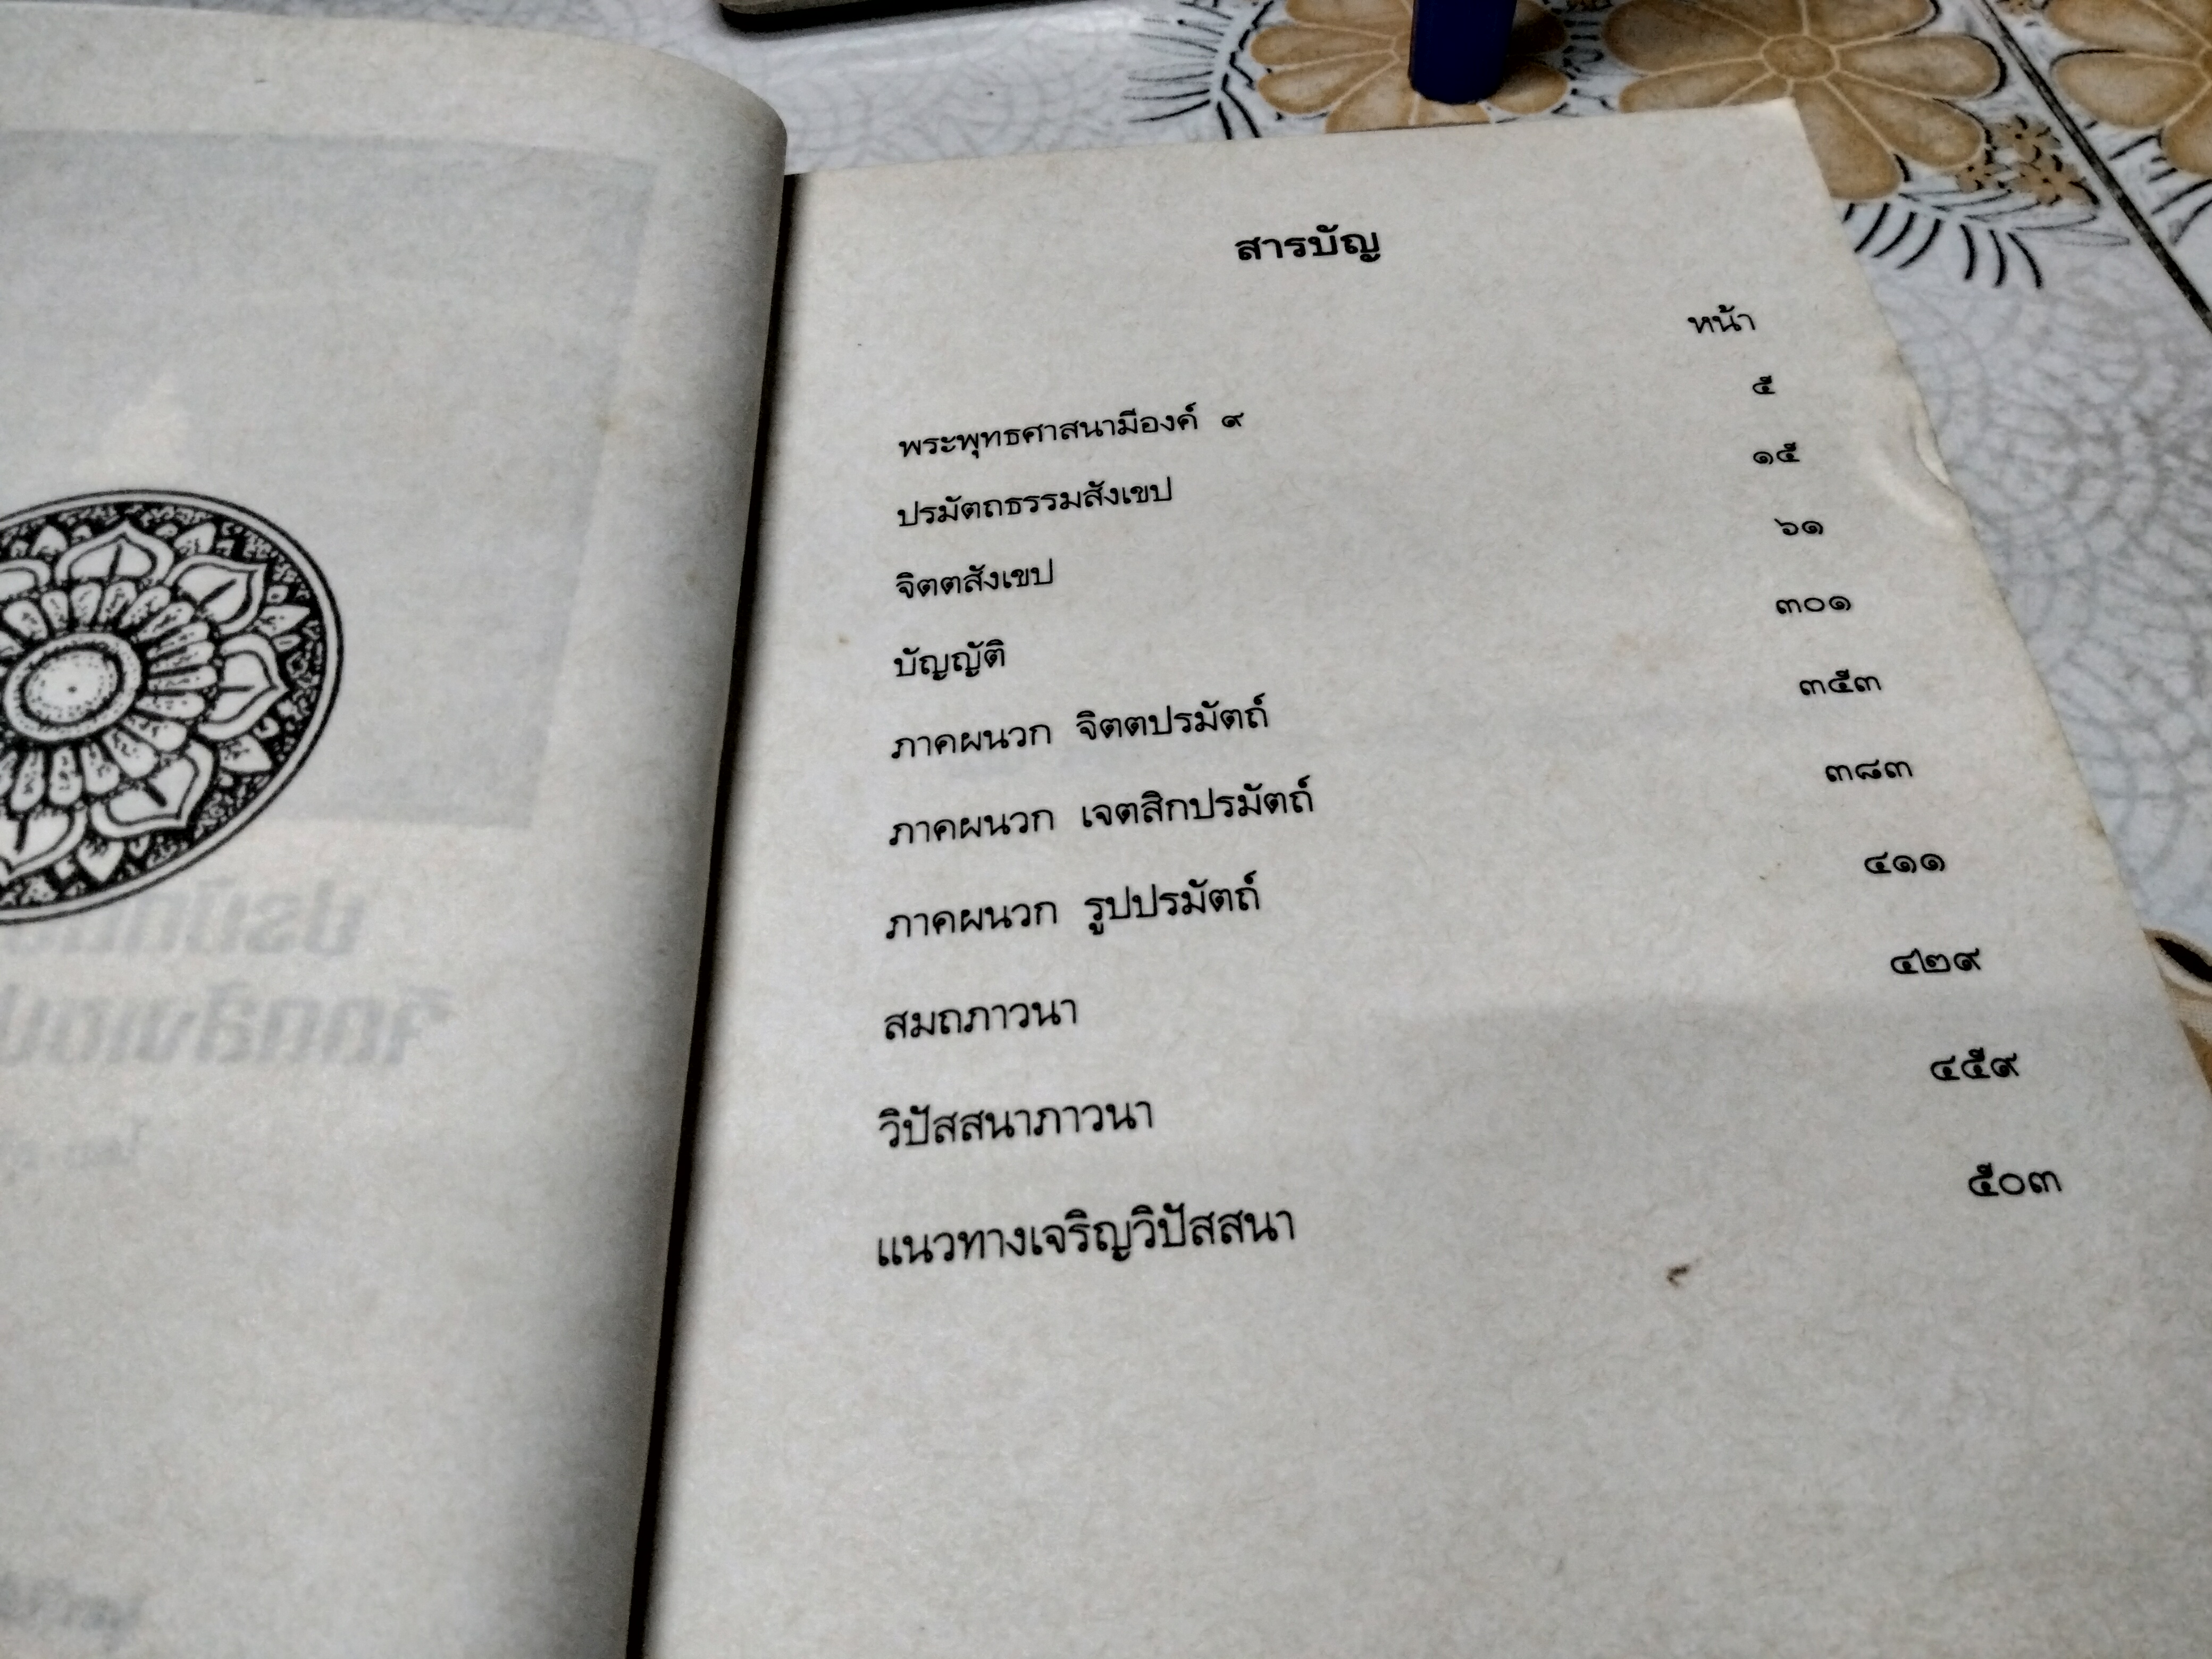 สารบัญ
หน้า
พระพุทธศาสนามีองค์ ๙ ๕
ปรมัตถธรรมสังเขป ๑๕
จิตตสังเขป ๖๑
บัญญัติ ๓๐๑
ภาคผนวก จิตตปรมัตถ์ ๓๕๓
ภาคผนวก เจตสิกปรมัตถ์ ๓๘๓
ภาคผนวก รูปปรมัตถ์ ๔๑๑
สมถภาวนา ๔๒๙
วิปัสสนาภาวนา ๔๕๙
แนวทางเจริญวิปัสสนา ๕๐๓